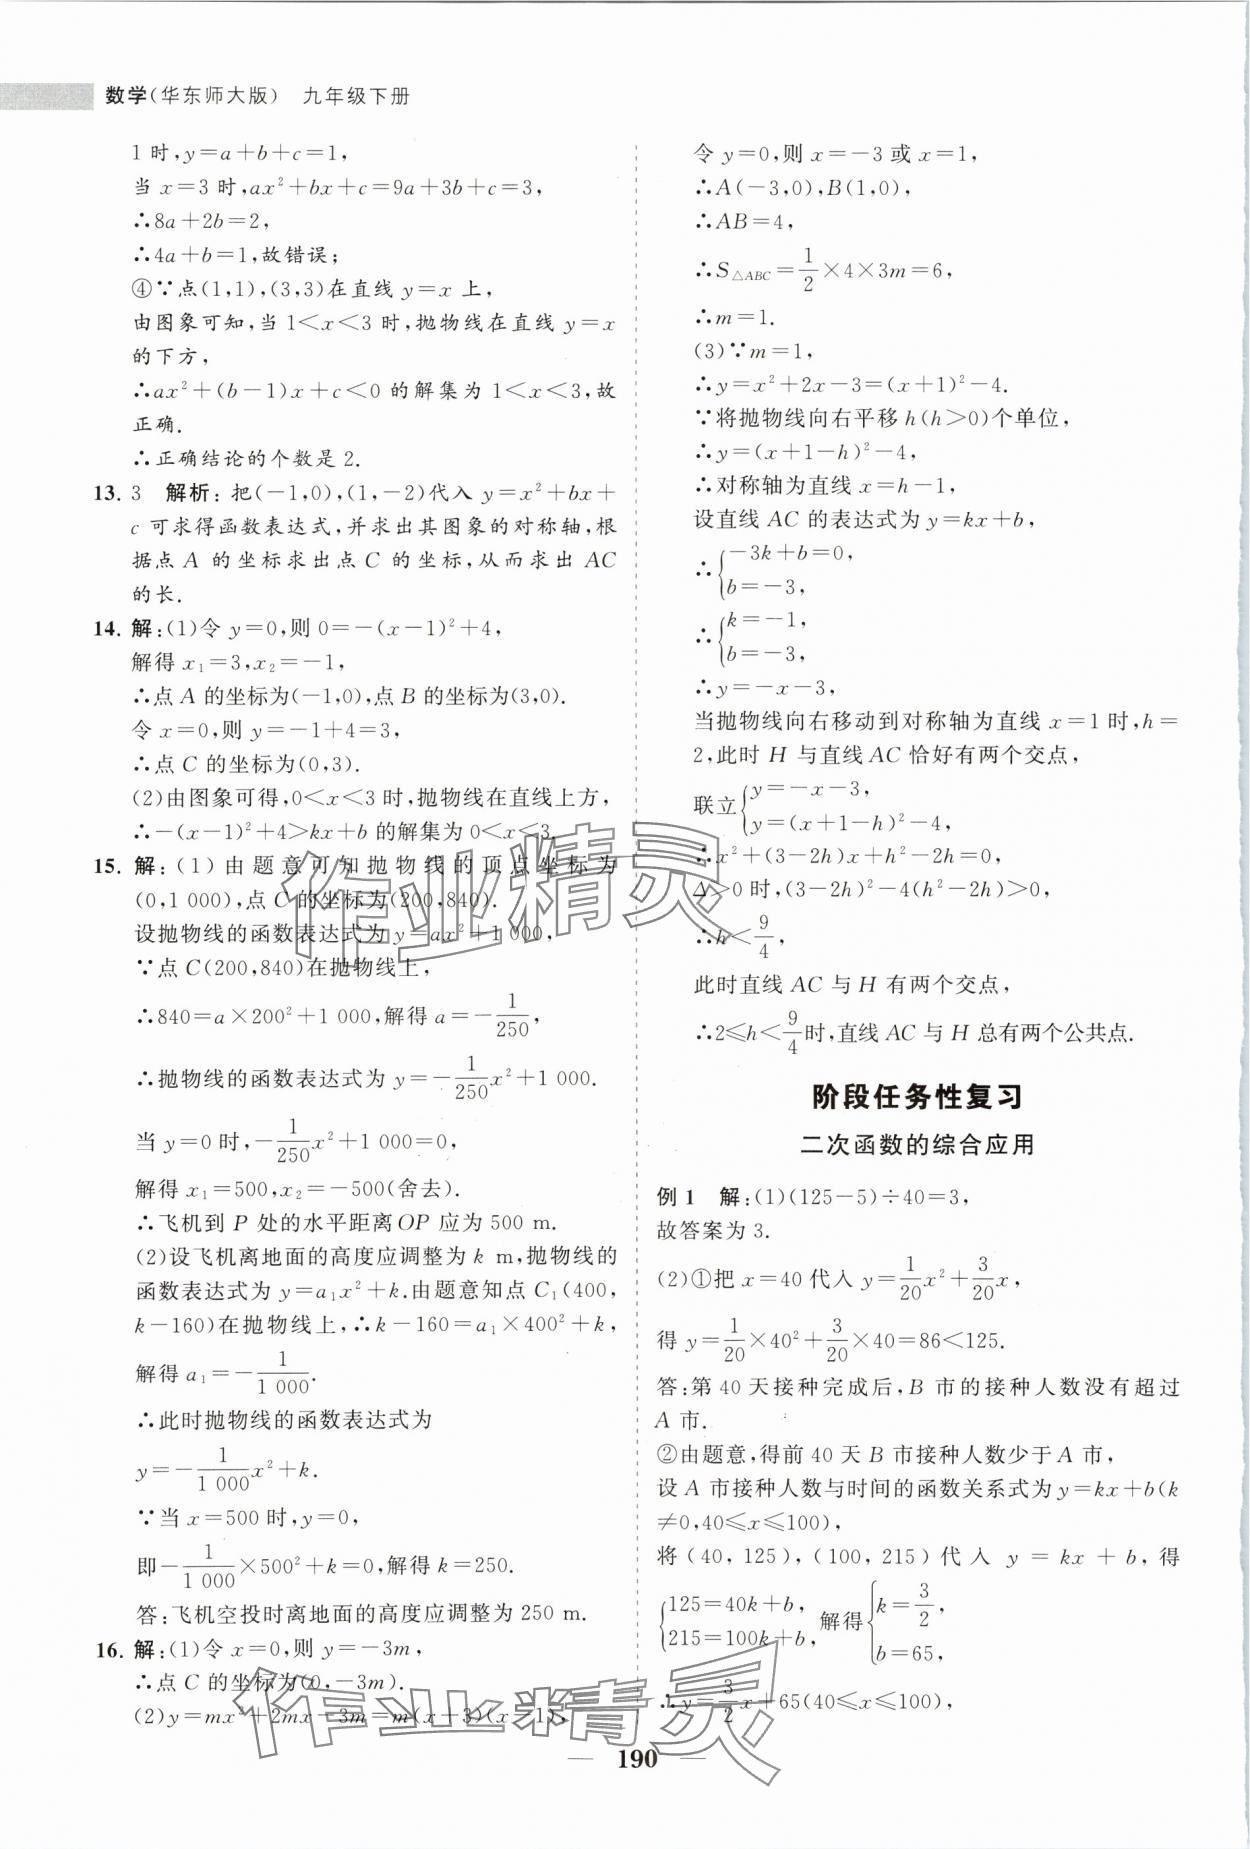 数学(华东师大版) 九年级下册
1时,y=a+b+c=1,
当x=3时,ax²+bx+c=9a+3b+c=3,
∴8a+2b=2,
∴4a+b=1,故错误;
④∵点(1,1),(3,3)在直线y=x上,
由图象可知,当1<x<3时,抛物线在直线y=x
的下方,
∴ax²+(b-1)x+c<0的解集为1<x<3,故
正确.
∴正确结论的个数是2.
13. 3 解析:把(-1,0),(1,-2)代入y=x²+bx+
c可求得函数表达式,并求出其图象的对称轴,根
据点A的坐标求出点C的坐标,从而求出AC
的长.
14. 解:(1)令y=0,则0=-(x-1)²+4,
解得x₁=3,x₂=-1,
∴点A的坐标为(-1,0),点B的坐标为(3,0).
令x=0,则y=-1+4=3,
∴点C的坐标为(0,3).
(2)由图象可得,0<x<3时,抛物线在直线上方,
∴-(x-1)²+4>kx+b的解集为0<x<3.
15. 解:(1)由题意可知抛物线的顶点坐标为
(0,1 000),点C的坐标为(200,840).
设抛物线的函数表达式为y=ax²+1 000,
∵点C(200,840)在抛物线上,
∴840=a×200²+1 000,解得a=-1/250,
∴抛物线的函数表达式为y=-1/250x²+1 000.
当y=0时,-1/250x²+1 000=0,
解得x₁=500,x₂=-500(舍去).
∴飞机到P处的水平距离OP应为500 m.
(2)设飞机离地面的高度应调整为k m,抛物线的
函数表达式为y=a₁x²+k.由题意知点C₁(400,
k-160)在抛物线上,∴k-160=a₁×400²+k,
解得a₁=-1/1 000.
∴此时抛物线的函数表达式为
y=-1/1 000x²+k.
∵当x=500时,y=0,
即-1/1 000×500²+k=0,解得k=250.
答:飞机空投时离地面的高度应调整为250 m.
16. 解:(1)令x=0,则y=-3m,
∴点C的坐标为(0,-3m).
(2)y=mx²+2mx-3m=m(x+3)(x-1),
令y=0,则x=-3或x=1,
∴A(-3,0),B(1,0),
∴AB=4,
∴S△ABC=1/2×4×3m=6,
∴m=1.
(3)∵m=1,
∴y=x²+2x-3=(x+1)²-4.
∵将抛物线向右平移h(h>0)个单位,
∴y=(x+1-h)²-4,
∴对称轴为直线x=h-1,
设直线AC的表达式为y=kx+b,
∴{-3k+b=0,
b=-3,
∴{k=-1,
b=-3,
∴y=-x-3,
当抛物线向右移动到对称轴为直线x=1时,h=
2,此时H与直线AC恰好有两个交点,
联立{y=-x-3,
y=(x+1-h)²-4,
∴x²+(3-2h)x+h²-2h=0,
Δ>0时,(3-2h)²-4(h²-2h)>0,
∴h<9/4,
此时直线AC与H有两个交点,
∴2≤h<9/4时,直线AC与H总有两个公共点.
阶段任务性复习
二次函数的综合应用
例1 解:(1)(125-5)÷40=3,
故答案为3.
(2)①把x=40代入y=1/20x²+3/20x,
得y=1/20×40²+3/20×40=86<125.
答:第40天接种完成后,B市的接种人数没有超过
A市.
②由题意,得前40天B市接种人数少于A市,
设A市接种人数与时间的函数关系式为y=kx+b(k
≠0,40≤x≤100),
将(40,125),(100,215)代入y=kx+b,得
{125=40k+b,
215=100k+b, 解得{k=3/2,
b=65,
∴y=3/2x+65(40≤x≤100),
190
作业精灵
作业精灵